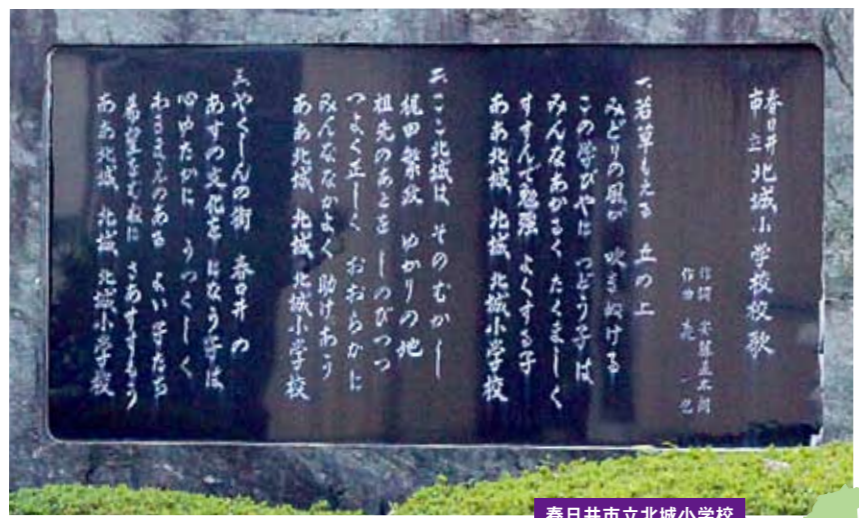 春日井市立北城小学校校歌
作詞 安藤直太朗
作曲
一、若草もえる 丘の上
みどりの風が 吹きぬける
この学びやに つどう子は
みんなあかるく たくましく
すすんで勉強 よくする子
ああ北城 北城 北城小学校
二、ここ北城は そのむかし
梶田繁政 ゆかりの地
祖先のあとを しのびつつ
つよく正しく おおらかに
みんななかよく 助けあう
ああ北城 北城 北城小学校
三、やくしんの街 春日井の
あすの文化を になう子は
心ゆたかに うつくしく
わきまえのある よい子たち
希望をむねに さあすすもう
ああ北城 北城 北城小学校
春日井市立北城小学校